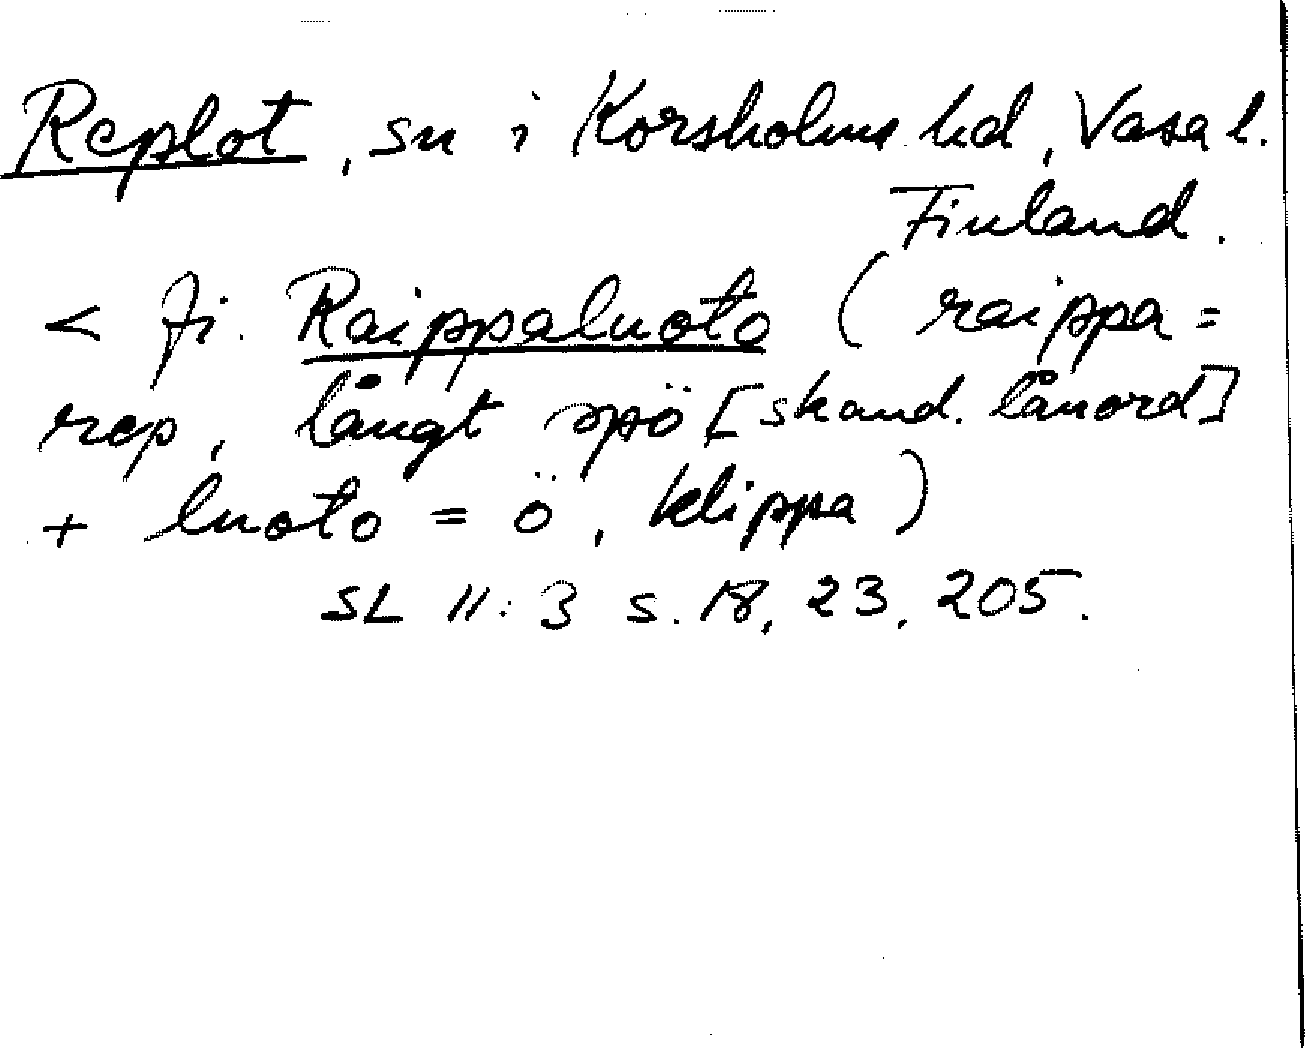 Replot, sn i Korsholms hd, Vasa l.
Finland.
< fi. Raippaluoto (raippa =
rep, långt spö [skand. lånord]
+ luoto = ö, klippa)
SL II:3 s. 18, 23, 205.